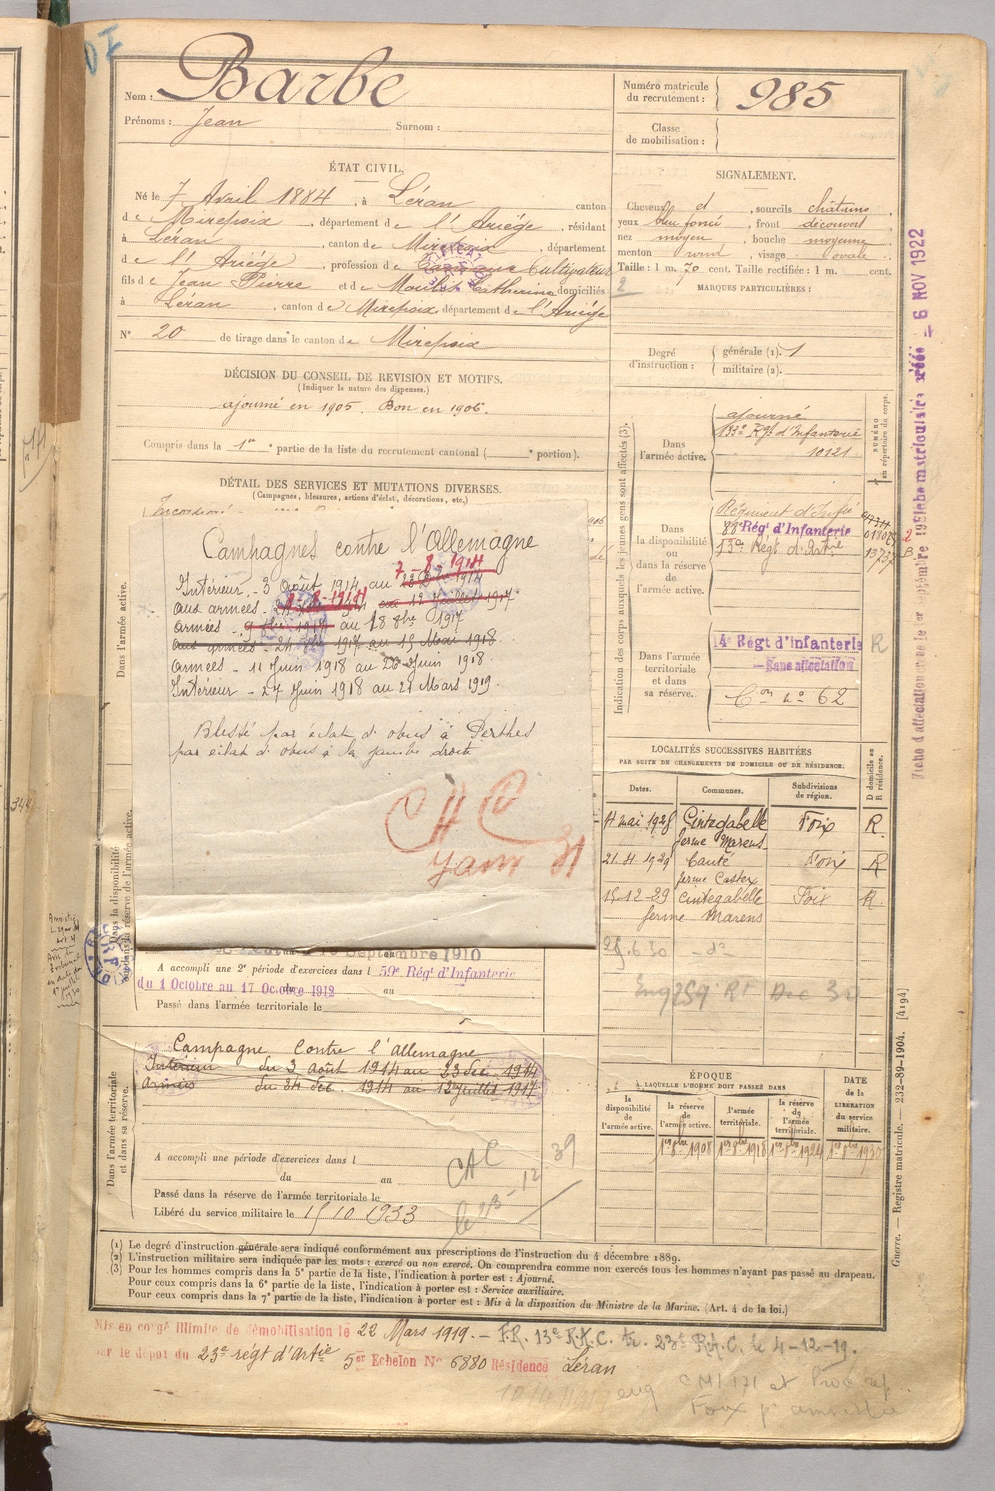 Nom : Barbe
Prénoms : Jean Surnom :
Numéro matricule
du recrutement : 985
Classe
de mobilisation :
ÉTAT CIVIL.
Né le 7 Avril 1884, à Léran canton
de Mirepoix, département de l'Ariége, résidant
à Léran, canton de Mirepoix, département
de l'Ariége, profession de Cultivateur
fils de Jean Pierre et de Moulis Catherine domiciliés
à Léran, canton de Mirepoix, département de l'Ariége
N° 20 de tirage dans le canton de Mirepoix
SIGNALEMENT.
Cheveux d, sourcils châtains,
yeux bleu foncé, front découvert
nez moyen, bouche moyenne
menton rond, visage ovale.
Taille : 1 m. 70 cent. Taille rectifiée : 1 m. cent.
2 MARQUES PARTICULIÈRES :
Degré
d'instruction :
générale (1). 1
militaire (2).
DÉCISION DU CONSEIL DE REVISION ET MOTIFS.
(Indiquer la nature des dispenses.)
ajourné en 1905. Bon en 1906.
Compris dans la 1re partie de la liste du recrutement cantonal ( e portion).
DÉTAIL DES SERVICES ET MUTATIONS DIVERSES.
(Campagnes, blessures, actions d'éclat, décorations, etc.)
Dans l'armée active.
Camhagnes contre l'Allemagne
Intérieur - 3 Août 1914 au 7-8-1914
aux armées - 8-8-1914 au 12 Juillet 1917.
armées - au 18 8bre 1917
aux armées - 1917 au 15 Mai 1918.
armées - 11 Juin 1918 au 26 Juin 1918.
Intérieur - 27 Juin 1918 au 21 Mars 1919.
Blessé par éclat d'obus à Perthes
par éclat d'obus à la jambe droite
Indication des corps auxquels les jeunes gens sont affectés (3).
NUMÉRO
au répertoire du corps.
Dans
l'armée active.
ajourné
Rgt d'Infanterie
10121
Dans
la disponibilité
ou
dans la réserve
de
l'armée active.
Régiment d'Infie
88e Régt d'Infanterie
13e Régt d'Artrie
Dans l'armée
territoriale
et dans
sa réserve.
14e Régt d'infanterie R
Sans affectation
Con no 62
Fiche d'affectation
6 NOV 1922
LOCALITÉS SUCCESSIVES HABITÉES
PAR SUITE DE CHANGEMENTS DE DOMICILE OU DE RÉSIDENCE.
D domicile ou
R résidence.
Dates. Communes. Subdivisions
de région.
mai 1928 Cintegabelle Foix R.
ferme Marens
1929 Canté Foix R
ferme Castex
15-12-29 Cintegabelle Foix R.
ferme Marens
6.30 - do -
Dans la disponibilité
ou dans la réserve de l'armée active.
Septembre 1910
A accompli une 2e période d'exercices dans l 59e Régt d'Infanterie
du 1 Octobre au 17 Octobre 1912 au
Passé dans l'armée territoriale le
Dans l'armée territoriale
et dans sa réserve.
Campagne Contre l'Allemagne
Intérieur du 3 août 1914 au 23 déc. 1914
Armées du 24 déc. 1914 au 12 juillet 1917
A accompli une période d'exercices dans l
du au
Passé dans la réserve de l'armée territoriale le
Libéré du service militaire le 15 10 1933
ÉPOQUE
À LAQUELLE L'HOMME DOIT PASSER DANS
DATE
de la
LIBÉRATION
du service
militaire.
la
disponibilité
de
l'armée active.
la réserve
de
l'armée active.
l'armée
territoriale.
la réserve
de
l'armée
territoriale.
1er 8bre 1908 1er 8bre 1918 1er 8bre 1924 1er 8bre 1930
(1) Le degré d'instruction générale sera indiqué conformément aux prescriptions de l'instruction du 4 décembre 1889.
(2) L'instruction militaire sera indiquée par les mots : exercé ou non exercé. On comprendra comme non exercés tous les hommes n'ayant pas passé au drapeau.
(3) Pour les hommes compris dans la 5e partie de la liste, l'indication à porter est : Ajourné.
Pour ceux compris dans la 6e partie de la liste, l'indication à porter est : Service auxiliaire.
Pour ceux compris dans la 7e partie de la liste, l'indication à porter est : Mis à la disposition du Ministre de la Marine. (Art. 4 de la loi.)
Guerre. — Registre matricule. — 232-89-1904. [4194]
Mis en congé illimité de démobilisation le 22 Mars 1919. - F.R. 13e R.A.C. tr. 23e R.A.C. le 4-12-19.
sur le dépôt du 23e régt d'Artie 5er Echelon No 6880 Résidence Léran